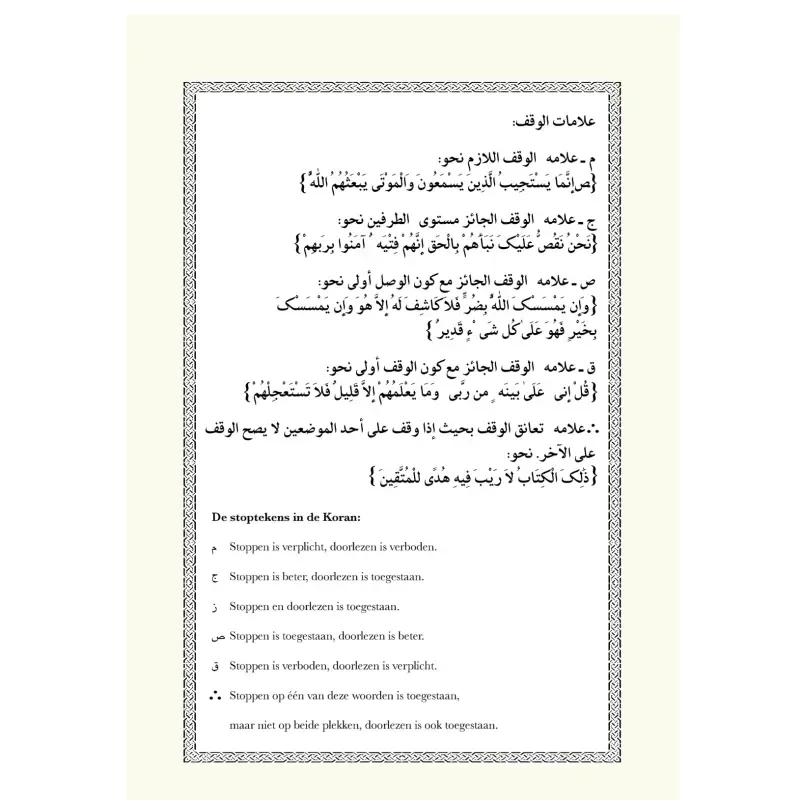 علامات الوقف:
م ـ علامه الوقف اللازم نحو:
{صإنَّمَا يَسْتَجِيبُ الَّذِينَ يَسْمَعُونَ وَالْمَوْتَى يَبْعَثُهُمُ اللهُ}
ج ـ علامه الوقف الجائز مستوى الطرفين نحو:
{نَحْنُ نَقُصُّ عَلَيْكَ نَبَأَهُمْ بِالْحَق إنَّهُمْ فِتْيَه ُ آمَنُوا بِرَبهِمْ}
ص ـ علامه الوقف الجائز مع كون الوصل أولى نحو:
{وَإن يَمْسَسْكَ اللهُ بِضُرٍّ فَلاَ كَاشِفَ لَهُ إلاَّ هُوَ وَإن يَمْسَسْكَ
بِخَيْرٍ فَهُوَ عَلَىٰ كُل شَىْءٍ قَدِيرُ}
ق ـ علامه الوقف الجائز مع كون الوقف أولى نحو:
{قُلْ إنى عَلَىٰ بَينَه ٍ من ربَّى وَمَا يَعْلَمُهُمْ إلاَّ قَلِيلُ فَلاَ تَسْتَعْجِلْهُمْ}
∴علامه تعانق الوقف بحيث إذا وقف على أحد الموضعين لا يصح الوقف
على الآخر. نحو:
{ذَٰلِكَ الْكِتَابُ لاَ رَيْبَ فِيهِ هُدًى للْمُتَّقِينَ}
De stoptekens in de Koran:
م Stoppen is verplicht, doorlezen is verboden.
ج Stoppen is beter, doorlezen is toegestaan.
ز Stoppen en doorlezen is toegestaan.
ص Stoppen is toegestaan, doorlezen is beter.
ق Stoppen is verboden, doorlezen is verplicht.
∴ Stoppen op één van deze woorden is toegestaan,
maar niet op beide plekken, doorlezen is ook toegestaan.